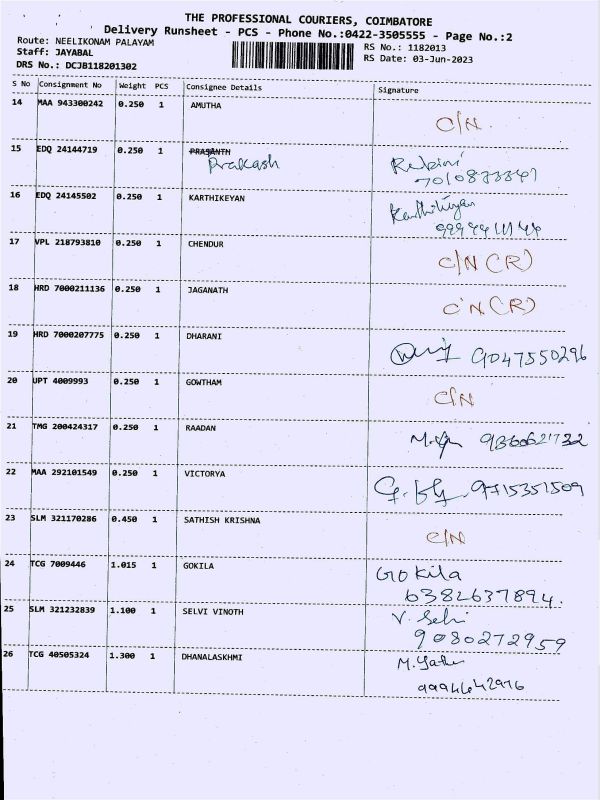 THE PROFESSIONAL COURIERS, COIMBATORE
Delivery Runsheet - PCS - Phone No.:0422-3505555 - Page No.:2
Route: NEELIKONAM PALAYAM
RS No.: 1182013
Staff: JAYABAL
RS Date: 03-Jun-2023
DRS No.: DCJB118201302
S No Consignment No Weight PCS Consignee Details Signature
14 MAA 943300242 0.250 1 AMUTHA
C/N
15 EDQ 24144719 0.250 1 PRASANTH
Prakash
7010873341
16 EDQ 24145502 0.250 1 KARTHIKEYAN
Karthikeyan
17 VPL 218793810 0.250 1 CHENDUR
C/N (R)
18 HRD 7000211136 0.250 1 JAGANATH
C'N (R)
19 HRD 7000207775 0.250 1 DHARANI
9047550296
20 UPT 4009993 0.250 1 GOWTHAM
C/N
21 TMG 200424317 0.250 1 RAADAN
22 MAA 292101549 0.250 1 VICTORYA
9715351509
23 SLM 321170286 0.450 1 SATHISH KRISHNA
C/N
24 TCG 7009446 1.015 1 GOKILA
GOKila
6382637894.
25 SLM 321232839 1.100 1 SELVI VINOTH
V. Selvi
9080272959
26 TCG 40505324 1.300 1 DHANALASKHMI
9994642916